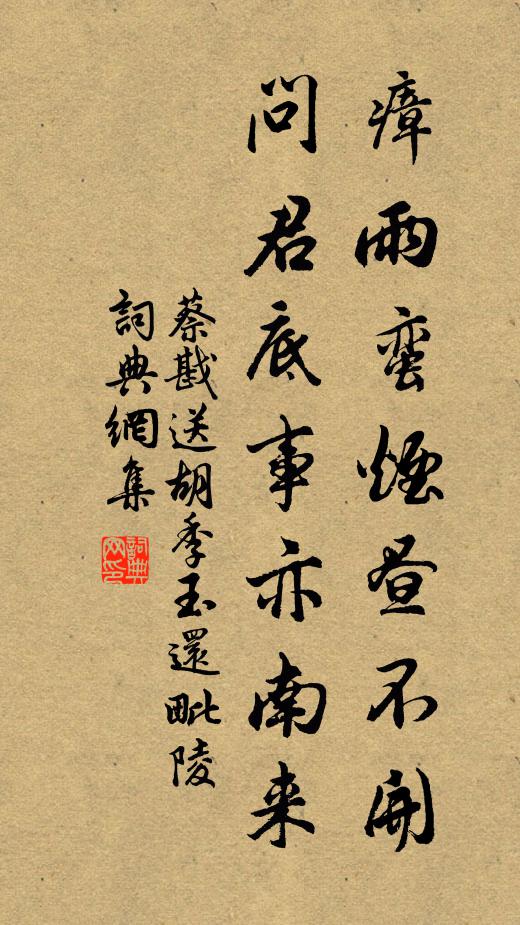 瘴雨蛮煙昼不開
問君底事亦南来
蔡戡送胡季玉還毗陵
詞典網集
詞典网印